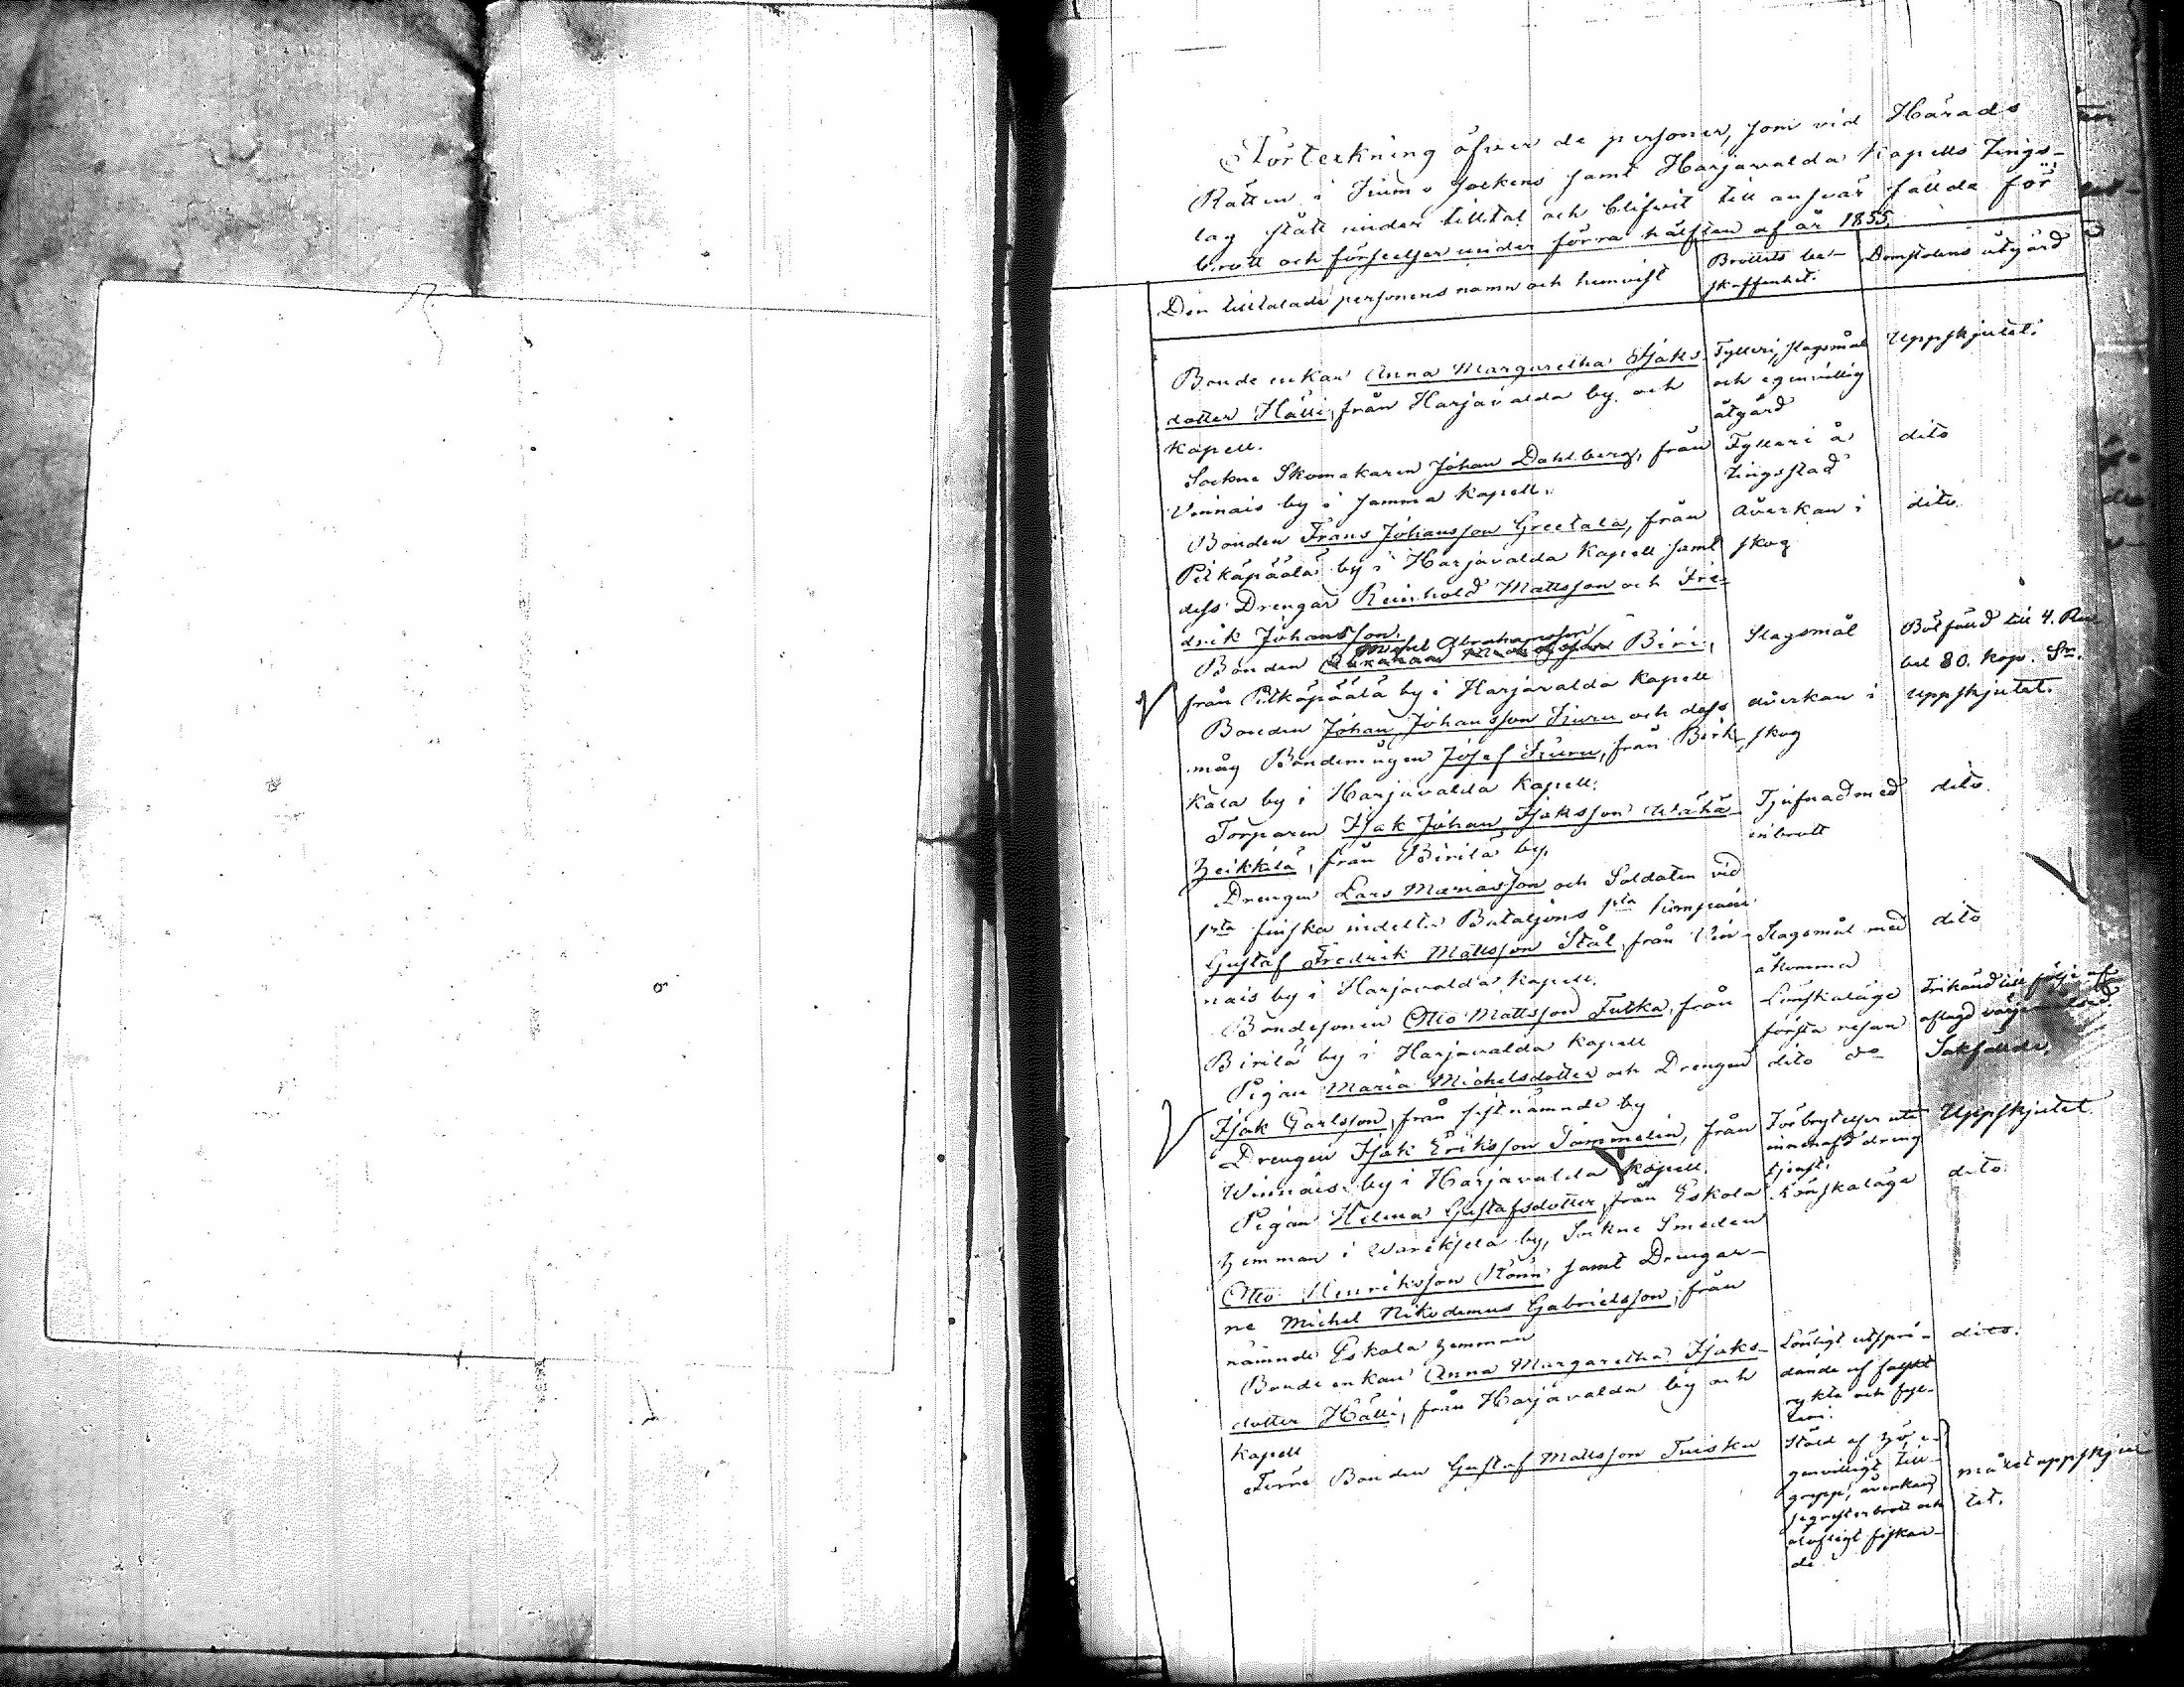 Förteckning öfver de personer, som vid Härads
Rätten i Kiumo Sockens samt Harjavalda Kapells Tings-
lag stått under tilltal och blifvit till ansvar fällda för
brott och förseelser under förra hälften af år 1855.
Den tilltalade personens namn och hemvist
Brottets be-
skaffenhet.
Domstolens åtgärd
Bonde enkan Anna Margaretha Isaks-
dotter Hälli, från Harjavalda by och
Kapell.
Fylleri, slagsmål
och egenvillig
åtgärd
Uppskjutet.
Sockne Skomakaren Johan Dahlberg, från
Vinnais by i samma Kapell.
Fylleri å
tingsstad
dito
Bonden Frans Johansson Greetala, från
Pitkäpäälä by i Harjavalda Kapell samt
dess Drengar Reinhold Mattsson och Fre-
drik Johansson.
Åverkan i
skog
dito.
Michel Abrahamsson
Bonden Biri,
från Pitkäpäälä by i Harjavalda Kapell
Slagsmål
Bötfäld till 4. Ru-
bel 80. kop. Sr.
Bonden Johan Johansson Kuru och dess
måg Bondemågen Josef Kuru, från Pirk-
kala by i Harjavalda Kapell.
åverkan i
skog
uppskjutet.
Torparen Isak Johan Isaksson Alahä-
heikkilä, från Pirilä by.
Tjufnad med
inbrott
dito.
Drengen Lars Mariasson och Soldaten vid
1sta finska indelta Bataljons 1sta kompani
Gustaf Fredrik Mattsson Stål, från Vin-
nais by i Harjavalda Kapell.
Slagsmål med
åkomma
dito
Bondesonen Otto Mattsson Tulka, från
Pirilä by i Harjavalda Kapell
Lönskaläge
första resan
Frikänd till följe af
aflagd värjemålsed.
Pigan Maria Michelsdotter och Drengen
Isak Carlsson, från sistnämnde by
dito do
Sakfällde.
Drengen Isak Eriksson Tammelin, från
Winnais by i Harjavalda Kapell.
Förbrytelser uti
innehafd dreng
tjenst.
Uppskjutet.
Pigan Helena Gustafsdotter från Eskola
hemman i by, Sockne Smeden
Otto Henriksson Rönn samt Drengar-
ne Michel Nikodemus Gabrielsson, från
nämnde Eskola hemman
Lönskaläge
dito.
Bonde enkan Anna Margaretha Isaks-
dotter Hälli, från Harjavalda by och
Kapell
Lönligt utspri-
dande af falskt
rykte och fyl-
leri.
dito.
Förre Bonden Gustaf Mattsson Tuisku
Stöld af hö, e-
genvilligt till-
grepp, åverkan,
sequesterbrott och
olofligt fiskan-
de.
målet uppskju-
tet.